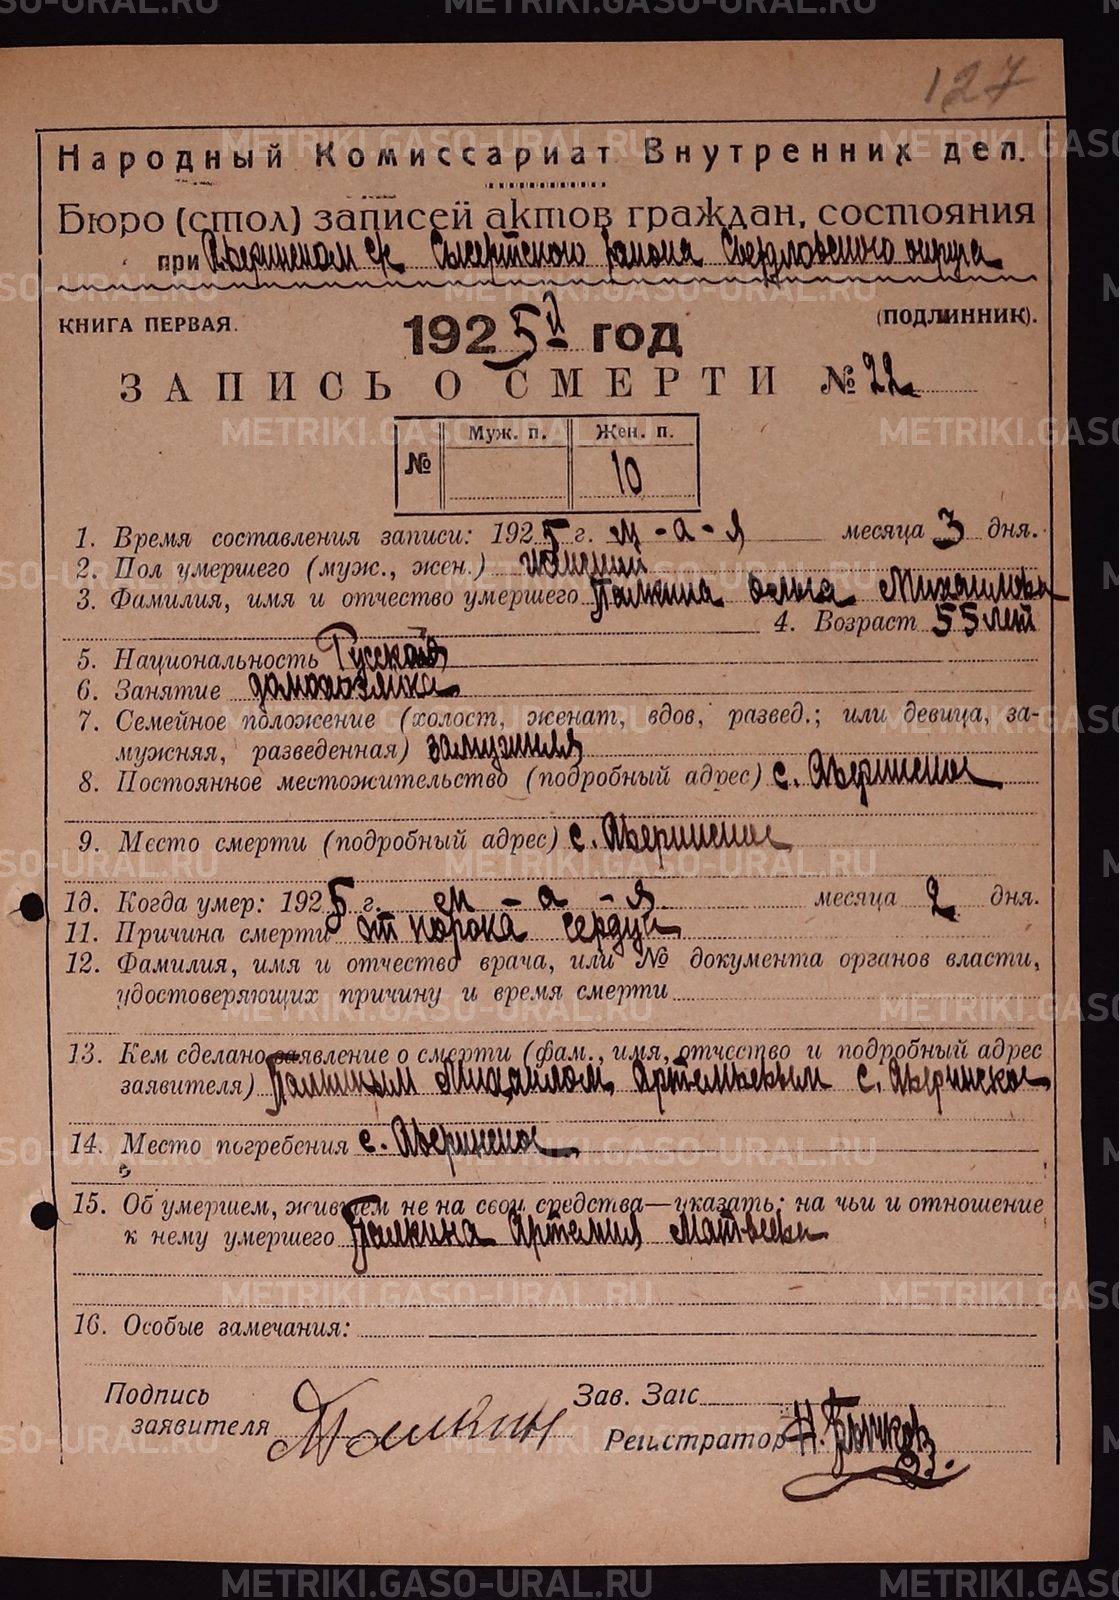 127
Народный Комиссариат Внутренних дел.
Бюро (стол) записей актов граждан, состояния
при Аверинском с/с Сысертского района Свердловского округа
КНИГА ПЕРВАЯ.
(ПОДЛИННИК).
1925й год
ЗАПИСЬ О СМЕРТИ № 22
№ Муж. п. Жен. п.
10
1. Время составления записи: 1925 г. м-а-я месяца 3 дня.
2. Пол умершего (муж., жен.) женский
3. Фамилия, имя и отчество умершего Палкина Ольга Михайловн
4. Возраст 55 лет
5. Национальность Русская
6. Занятие домохозяйка
7. Семейное положение (холост, женат, вдов, развед.; или девица, за-
мужняя, разведенная) замужняя
8. Постоянное местожительство (подробный адрес) с. Аверинское
9. Место смерти (подробный адрес) с. Аверинское
10. Когда умер: 1925 г. м-а-я месяца 2 дня.
11. Причина смерти от порока сердца
12. Фамилия, имя и отчество врача, или № документа органов власти,
удостоверяющих причину и время смерти
13. Кем сделано заявление о смерти (фам., имя, отчество и подробный адрес
заявителя) Палкиным Михаилом Артемьевым с. Аверинское
14. Место погребения с. Аверинское
15. Об умершем, жившем не на свои средства—указать: на чьи и отношение
к нему умершего Палкина Артемия Матвеева
16. Особые замечания:
Подпись
заявителя Палкин
Зав. Загс
Регистратор Н. Бычков
METRIKI.GASO-URAL.RU